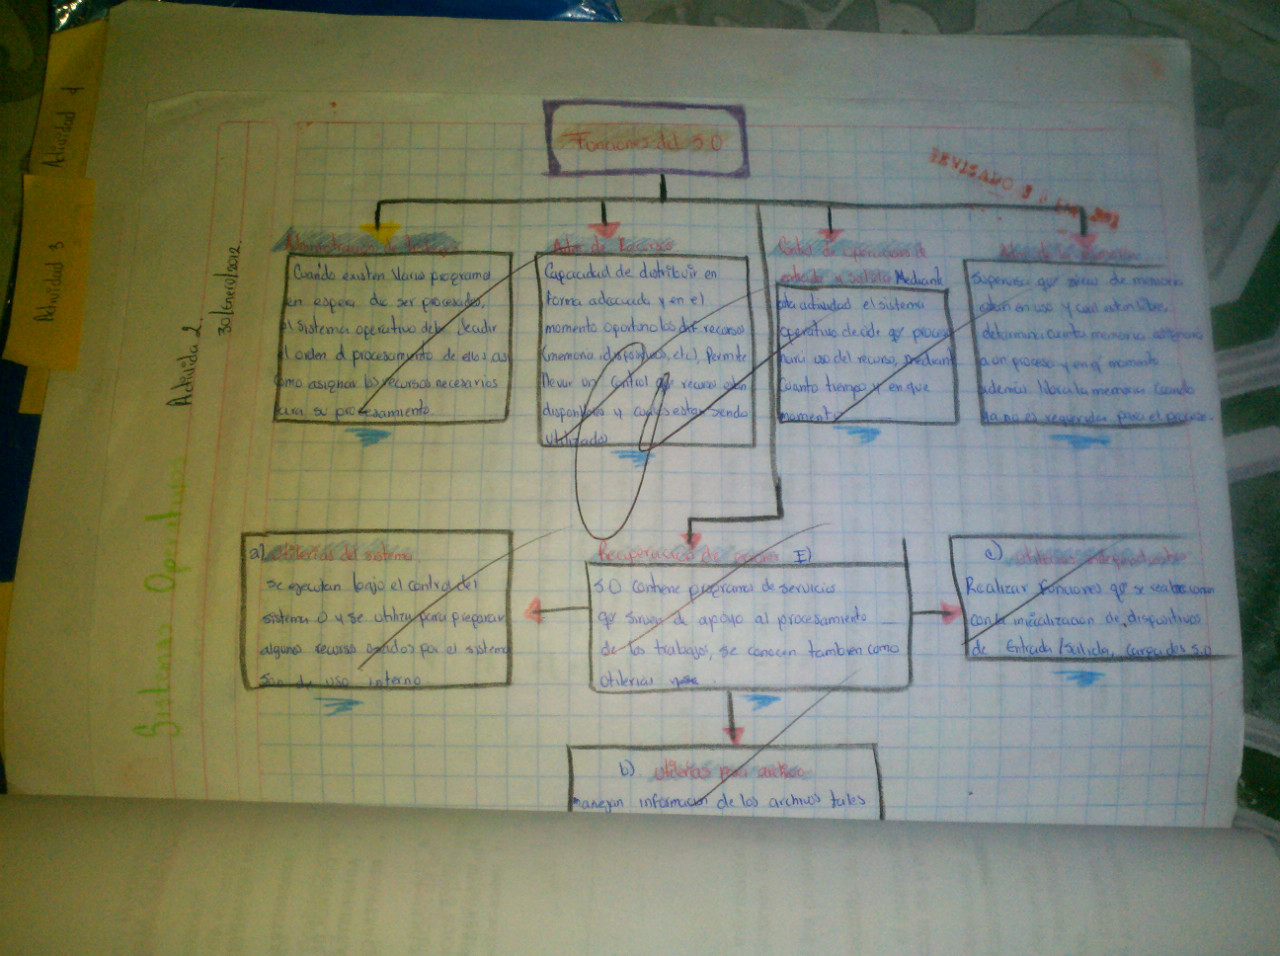 Actividad 4
Actividad 3
Actividad 2.
30/enero/2012.
Sistemas Operativos
Funciones del S.O
REVISADO 3 0
Admon de Recursos
Control de operaciones d
entrada y salida Mediant
Cuando existen Varios programa
en espera de ser procesados,
el sistema operativo debe decidir
el orden d procesamiento de ellos, as
como asignar los recursos necesarios
para su procesamiento.
Capacidad de distribuir en
forma adecuada y en el
momento oportuno los dif. recursos
(memoria, dispositivos, etc), Permite
llevar un control que recursos están
disponibles y cuales están siendo
utilizados
esta actividad el sistema
operativo decide qe proceso
hará uso del recurso, mediant
cuanto tiempo y en que
momento
Supervisa que áreas de memoria
están en uso y cual están libre,
determina cuanta memoria asignará
a un proceso y en qe momento
además libera la memoria cuando
ya no es requerida para el proceso.
a) Utilerías del sistema
se ejecutan bajo el control del
sistema O y se utiliza para preparar
algunos recursos usados por el sistema
son de uso interno.
Recuperación de errores E)
S.O contiene programas de servicios
qe sirven de apoyo al procesamiento
de los trabajos, se conocen también como
utilerías
c) Utilerías independientes
Realizar funciones qe se relacionan
con la inicialización de dispositivos
de Entrada/Salida, carga del S.O
b) utilerías para archivo
manejan información de los archivos tales